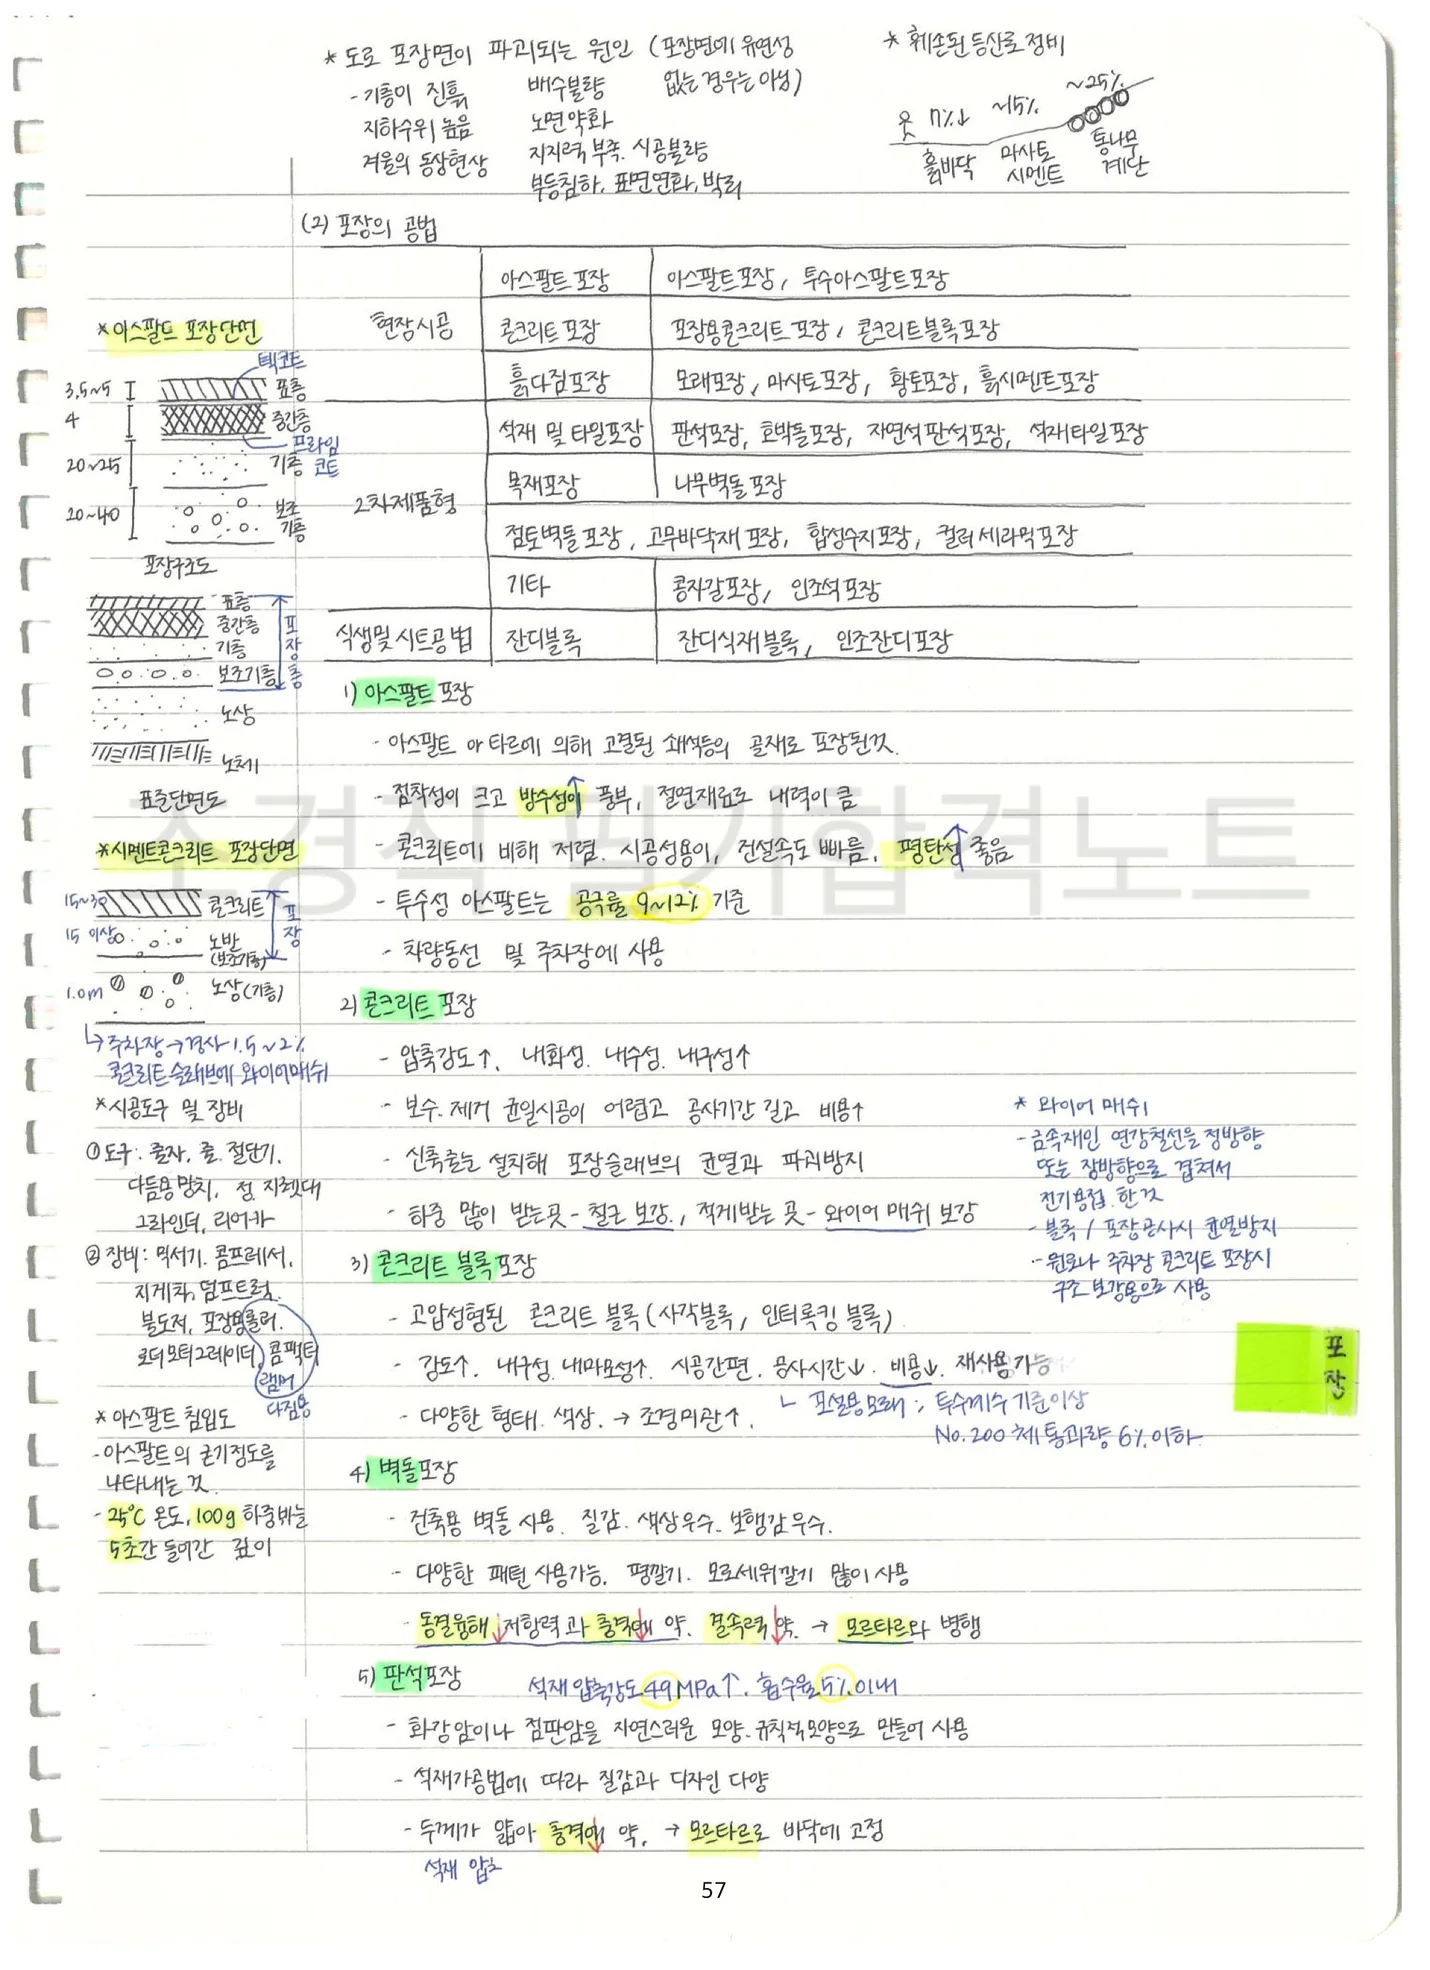 * 도로 포장면이 파괴되는 원인 (포장면에 유연성 없는 경우는 아님)
- 기층이 진흙
지하수위 높음
겨울의 동상현상
배수불량
노면약화
지지력 부족. 시공불량
부등침하, 표면연화, 박리
* 훼손된 등산로 정비
7%↓ ~15% ~25%
흙바닥
마사토 시멘트
통나무 계단
(2) 포장의 공법
현장시공
아스팔트 포장 아스팔트포장, 투수아스팔트포장
콘크리트 포장 포장용콘크리트 포장, 콘크리트블록포장
흙다짐포장 모래포장, 마사토포장, 황토포장, 흙시멘트포장
2차제품형
석재 및 타일포장 판석포장, 호박돌포장, 자연석 판석포장, 석재타일포장
목재포장 나무벽돌포장
점토벽돌 포장, 고무바닥재 포장, 합성수지포장, 컬러 세라믹포장
기타 콩자갈포장, 인조석 포장
식생및 시트공법 잔디블록 잔디식재블록, 인조잔디포장
* 아스팔트 포장단면
텍코트
3.5~5 표층
4 중간층
프라임 코트
20~25 기층
20~40 보조 기층
포장구조도
표층
중간층
기층
보조기층
포장층
노상
노체
표준단면도
* 시멘트콘크리트 포장단면
15~30 콘크리트
15 이상 노반
(보조기층)
포장
1.0m 노상(기층)
↳ 주차장 → 경사 1.5~2%
콘크리트슬래브에 와이어매쉬
* 시공도구 및 장비
① 도구: 줄자. 줄. 절단기.
다듬용 망치, 정. 지렛대
그라인더, 리어카
② 장비: 믹서기. 콤프레서.
지게차, 덤프트럭.
불도저, 포장용롤러.
로더 모터그레이더, 콤팩터
램머
다짐용
* 아스팔트 침입도
- 아스팔트의 굳기정도를
나타내는 것.
- 25℃ 온도, 100g 하중바늘
5초간 들어간 깊이
1) 아스팔트 포장
- 아스팔트 이 타르에 의해 고결된 쇄석등의 골재로 포장된것.
- 점착성이 크고 방수성이↑ 풍부, 절연재료로 내력이 큼
- 콘크리트에 비해 저렴. 시공성용이, 건설속도 빠름, 평탄성↑ 좋음
- 투수성 아스팔트는 공극률 9~12% 기준
- 차량동선 및 주차장에 사용
2) 콘크리트 포장
- 압축강도↑, 내화성. 내수성. 내구성↑
- 보수. 제거 균일시공이 어렵고 공사기간 길고 비용↑
- 신축줄눈 설치해 포장슬래브의 균열과 파괴방지
- 하중 많이 받는곳 - 철근 보강., 적게받는 곳 - 와이어 매쉬 보강
* 와이어 매쉬
- 금속재인 연강철선을 정방향
또는 장방향으로 겹쳐서
전기용접. 한 것
- 블록 / 포장공사시 균열방지
- 원로나 주차장 콘크리트 포장시
구조 보강용으로 사용
3) 콘크리트 블록포장
- 고압성형된 콘크리트 블록 (사각블록, 인터록킹 블록)
- 강도↑. 내구성. 내마모성↑. 시공간편. 공사시간↓. 비용↓. 재사용가능
- 다양한 형태. 색상. → 조경미관↑.
ㄴ 포설용모래: 투수계수 기준이상
No.200 체 통과량 6% 이하
포장
4) 벽돌포장
- 건축용 벽돌 사용. 질감. 색상우수. 보행감 우수.
- 다양한 패턴 사용가능. 평깔기. 모로세워깔기 많이 사용
- 동결융해↓ 저항력과 충격에↓ 약. 결속력↓ 약. → 모르타르와 병행
5) 판석포장
석재 압축강도 49MPa↑. 흡수율 5% 이내
- 화강암이나 점판암을 자연스러운 모양. 규칙적모양으로 만들어 사용
- 석재가공법에 따라 질감과 디자인 다양
- 두께가 얇아 충격에↓ 약. → 모르타르로 바닥에 고정
석재 압축
조경직 필기합격노트
57